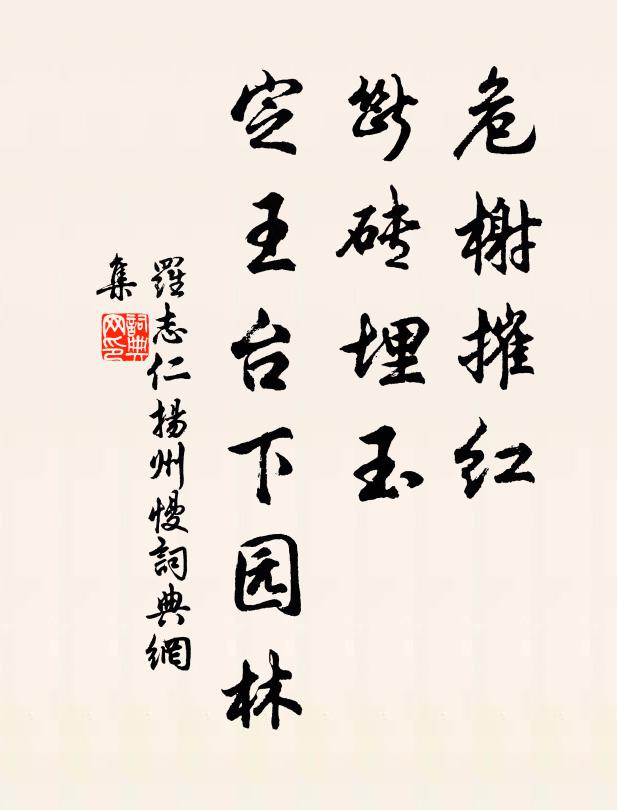 危榭摧红
断砖埋玉
定王台下园林
羅志仁揚州慢詞典網
集
詞典网印